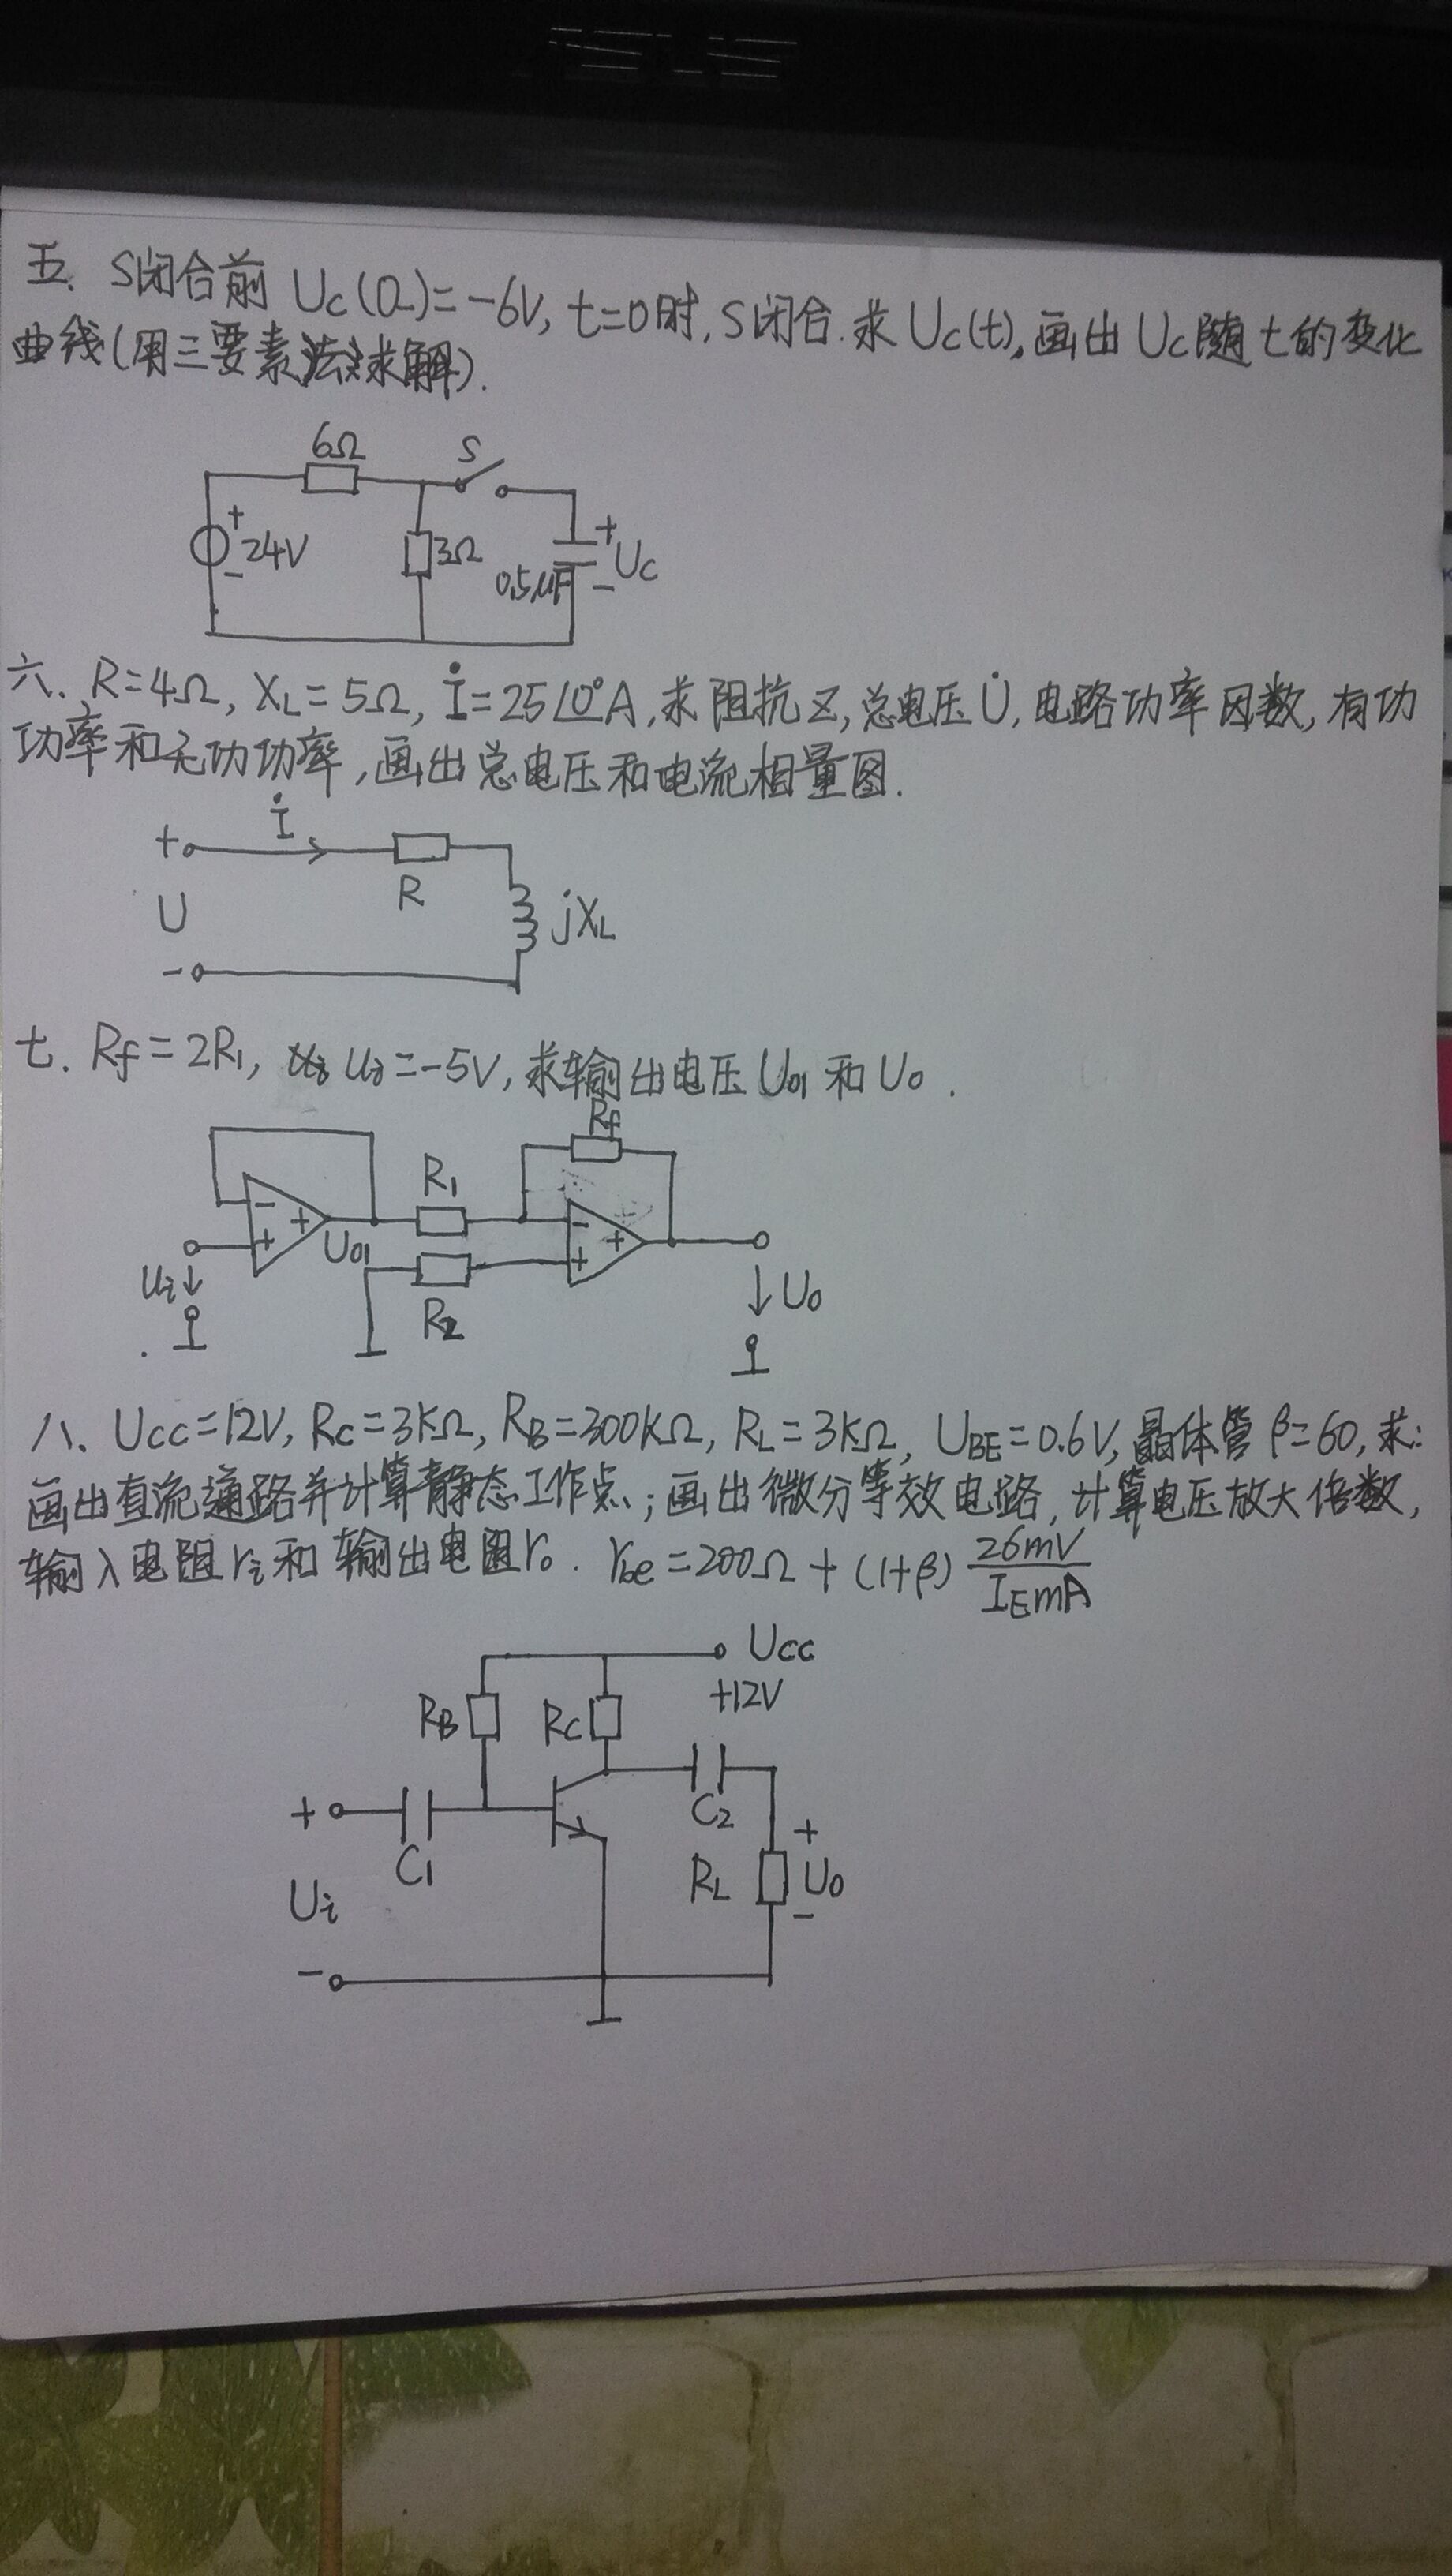 ASUS
五、S闭合前 Uc(0-)=-6V, t=0时, S闭合. 求 Uc(t), 画出 Uc随t的变化
曲线(用三要素法求解).
6Ω
S
+
24V
-
3Ω
0.5μF
+
Uc
-
六、R=4Ω, XL=5Ω, İ=25∠0°A, 求阻抗Z, 总电压U̇, 电路功率因数, 有功
功率和无功功率, 画出总电压和电流相量图.
+
İ
R
U
jXL
-
七. Rf=2R1, ui=-5V, 求输出电压 U01 和 U0.
Rf
R1
-
+
+
U01
-
+
+
ui
R2
U0
八、Ucc=12V, Rc=3KΩ, RB=300KΩ, RL=3KΩ, UBE=0.6V, 晶体管 β=60, 求:
画出直流通路并计算静态工作点; 画出微分等效电路, 计算电压放大倍数,
输入电阻ri和输出电阻ro. rbe=200Ω+(1+β) 26mV/IEmA
Ucc
+12V
RB
Rc
+
C1
C2
Ui
RL
+
U0
-
-